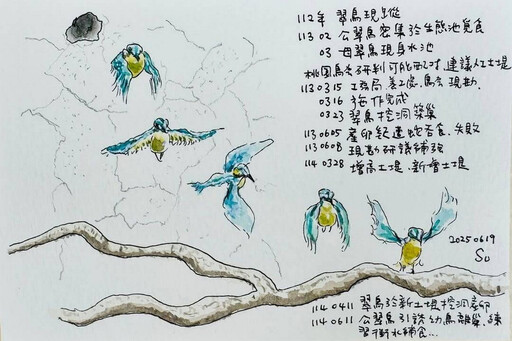 112年 翠鳥現蹤
113 02 公翠鳥密集於生態池覓食
03 母翠鳥現身水池
桃園鳥會研判可能配對, 建議人工土堤
113 0315 工務局 養工處.鳥會 現勘.
0316 施作完成
0323 翠鳥挖洞築巢
113 0605 產卵疑遭蛇吞食.失敗
113 0608 現勘研議補強
114 0328 增高土堤.新增土堤
2025 0619
Su
114 0411 翠鳥於新土堤挖洞產卵
114 0611 公翠鳥引誘幼鳥離巢.練
習衝水捕食...